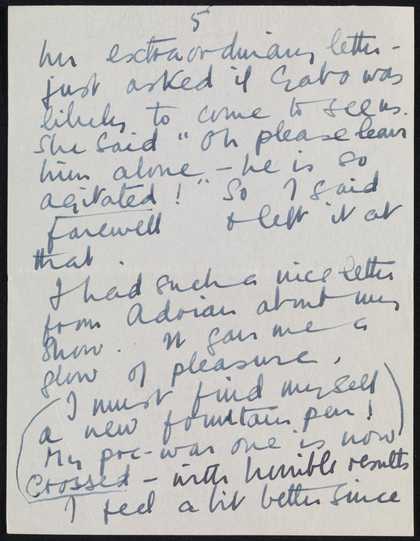 5
her extraordinary letter -
just asked if Gabo was
likely to come to see us.
She said "Oh please leave
him alone - he is so
agitated!" So I said
farewell & left it at
that.
I had such a nice letter
from Adrian about my
show. It gave me a
glow of pleasure.
(I must find myself
a new fountain pen!
My pre-war one is now
crossed - with horrible results)
I feel a bit better since